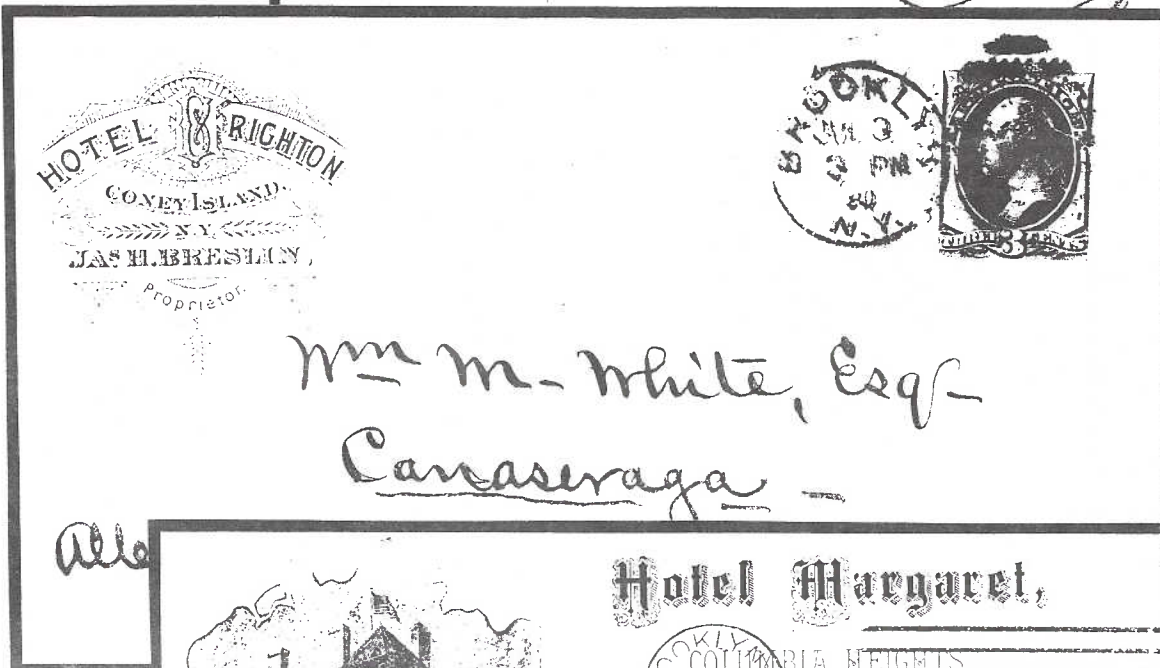 HOTEL BRIGHTON
CONEY ISLAND.
N.Y.
JAS H. BRESLIN,
Proprietor.
BROOKLYN
3
PM
80
N.Y.
THREE 3 CENTS
Wm M. White, Esq
Canaseraga
Alle
Hotel Margaret,
OKLYN
COLUMBIA HEIGHTS